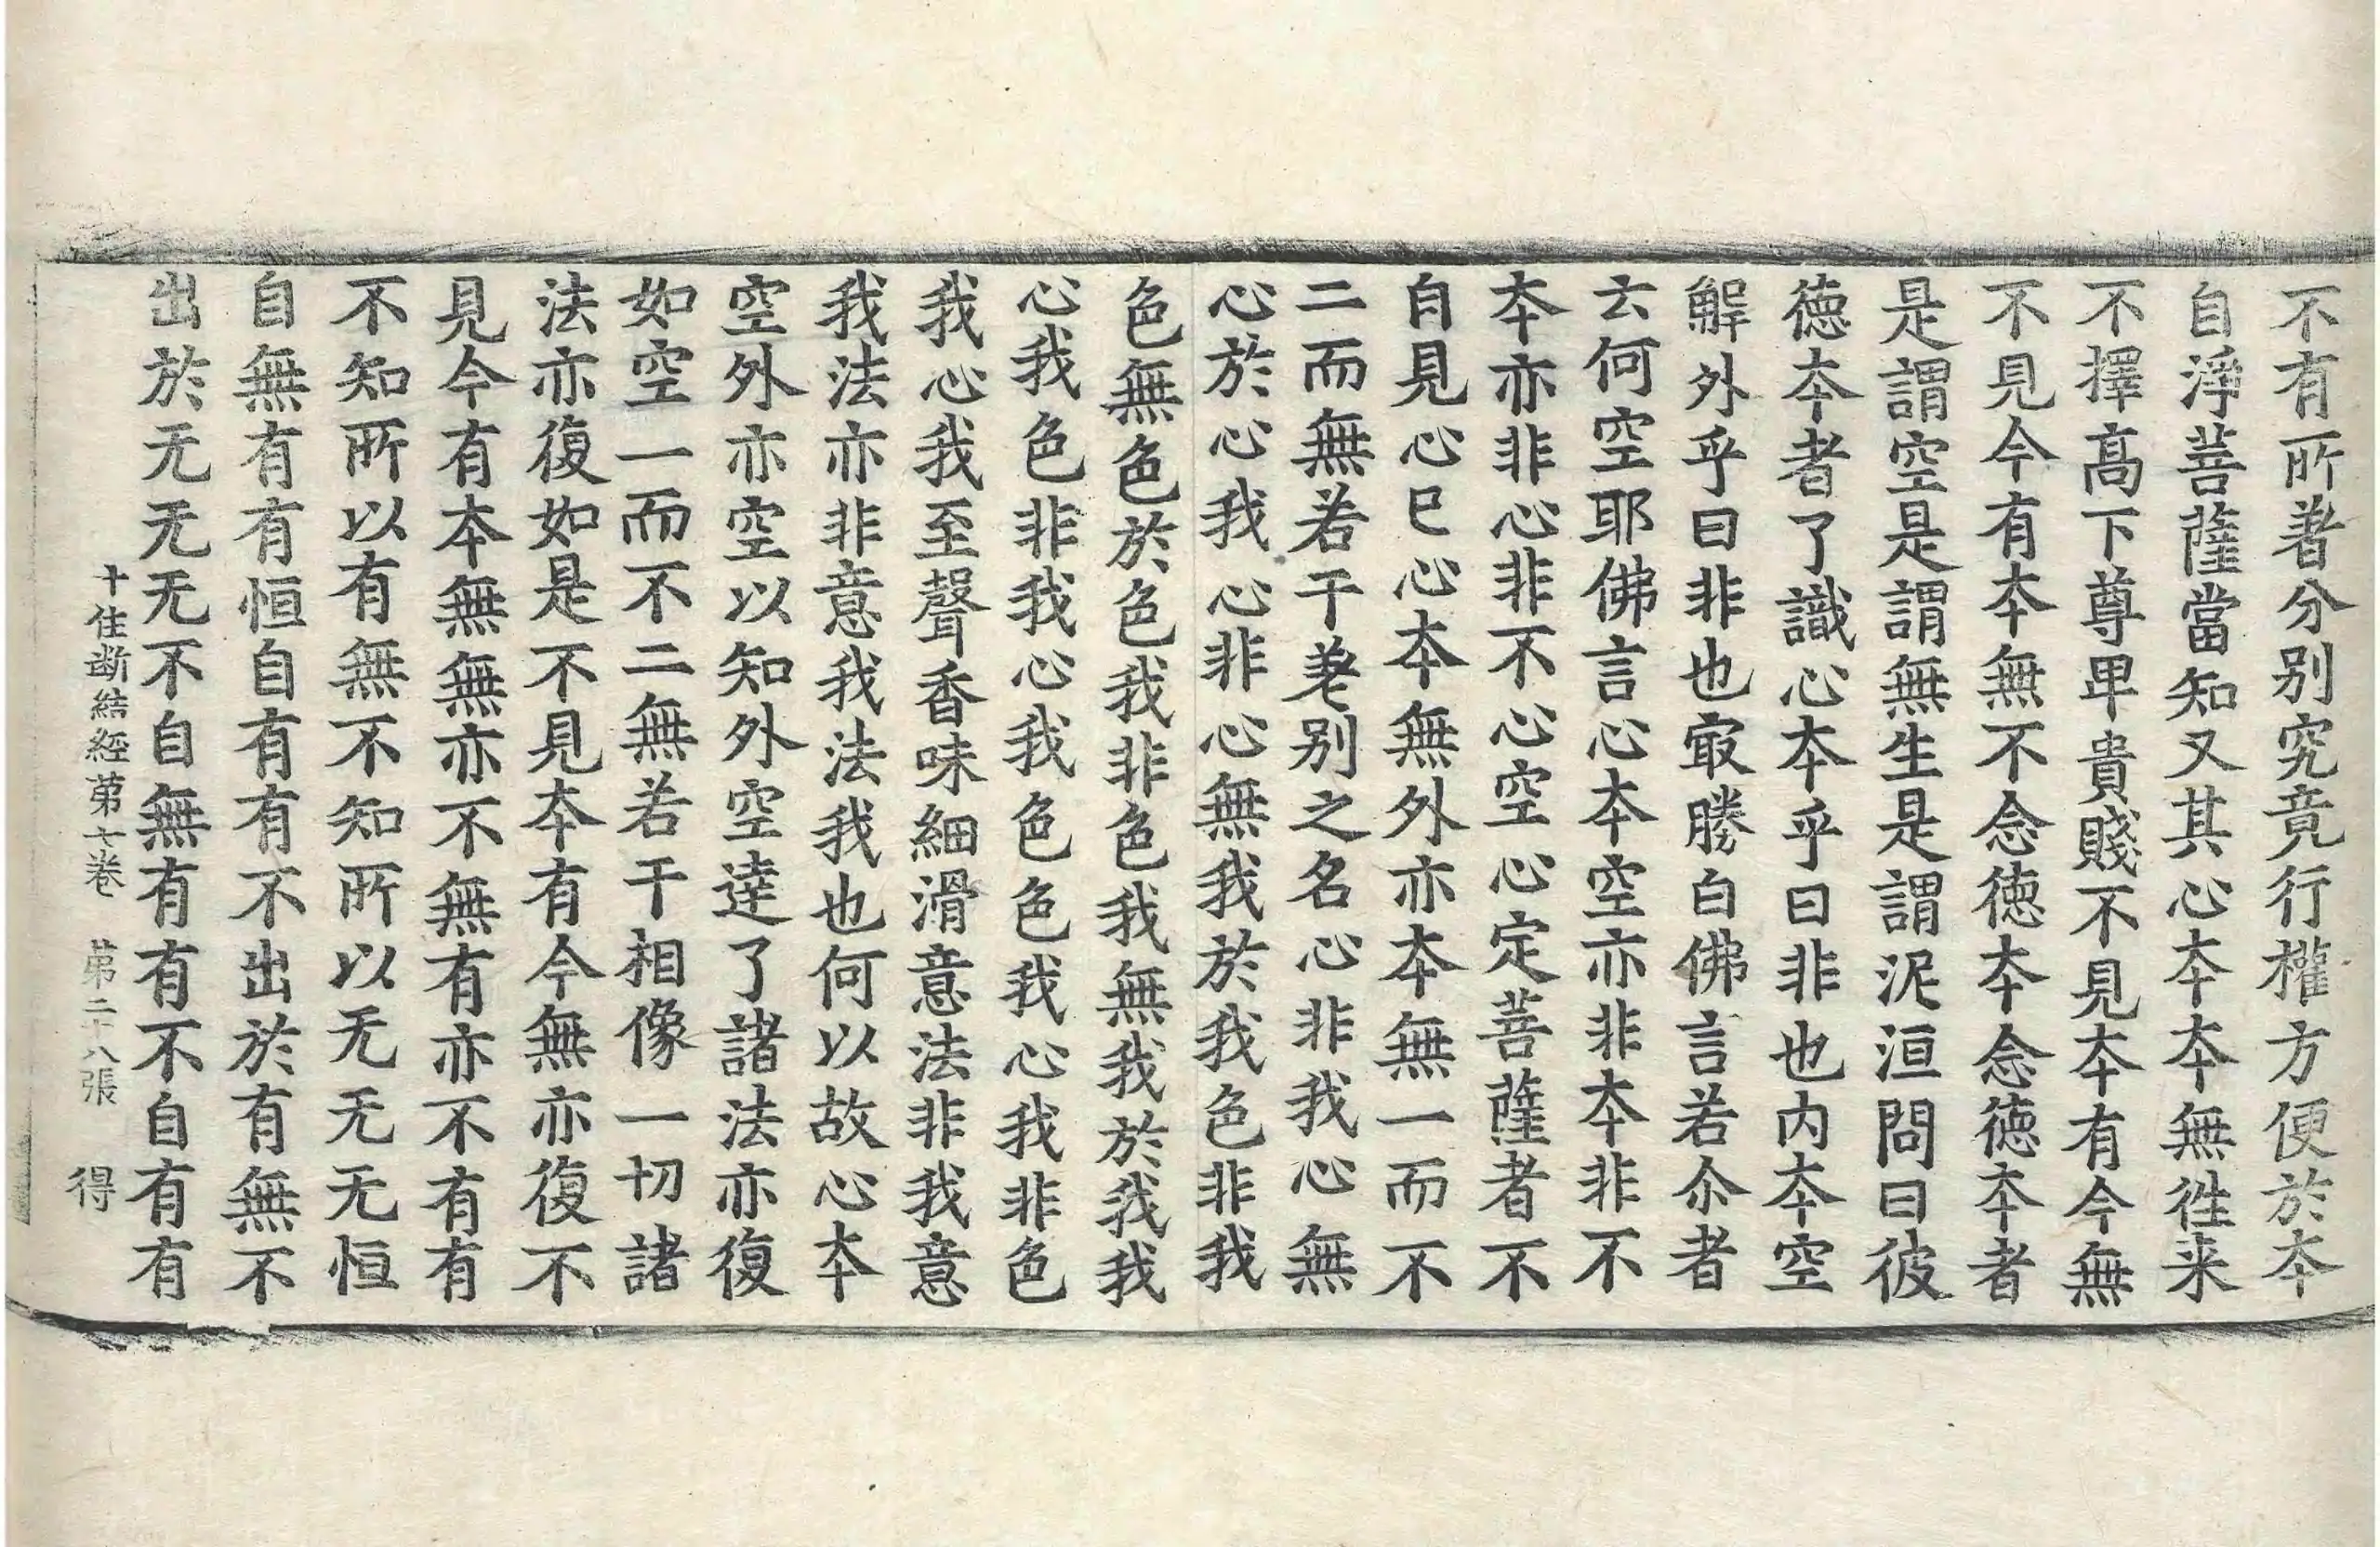 不有所著分別究竟行權方便於夲
自淨菩薩當知又其心夲夲無徃来
不擇高下尊卑貴賤不見夲有今無
不見今有夲無不念德夲念德夲者
是謂空是謂無生是謂泥洹問曰彼
德夲者了識心夲乎曰非也内夲空
解外乎曰非也㝡勝白佛言若尒者
云何空耶佛言心夲空亦非夲非不
夲亦非心非不心空心定菩薩者不
自見心已心夲無外亦夲無一而不
二而無若干差別之名心非我心無
心於心我心非心無我於我色非我
色無色於色我非色我無我於我我
心我色非我心我色色我心我非色
我心我至聲香味細滑意法非我意
我法亦非意我法我也何以故心夲
空外亦空以知外空達了諸法亦復
如空一而不二無若干相像一切諸
法亦復如是不見夲有今無亦復不
見今有夲無無亦不無有亦不有有
不知所以有無不知所以无无无恒
自無有有恒自有有不出於有無不
出於无无无不自無有有不自有有
十住斷結經苐七卷 苐二十八張 得